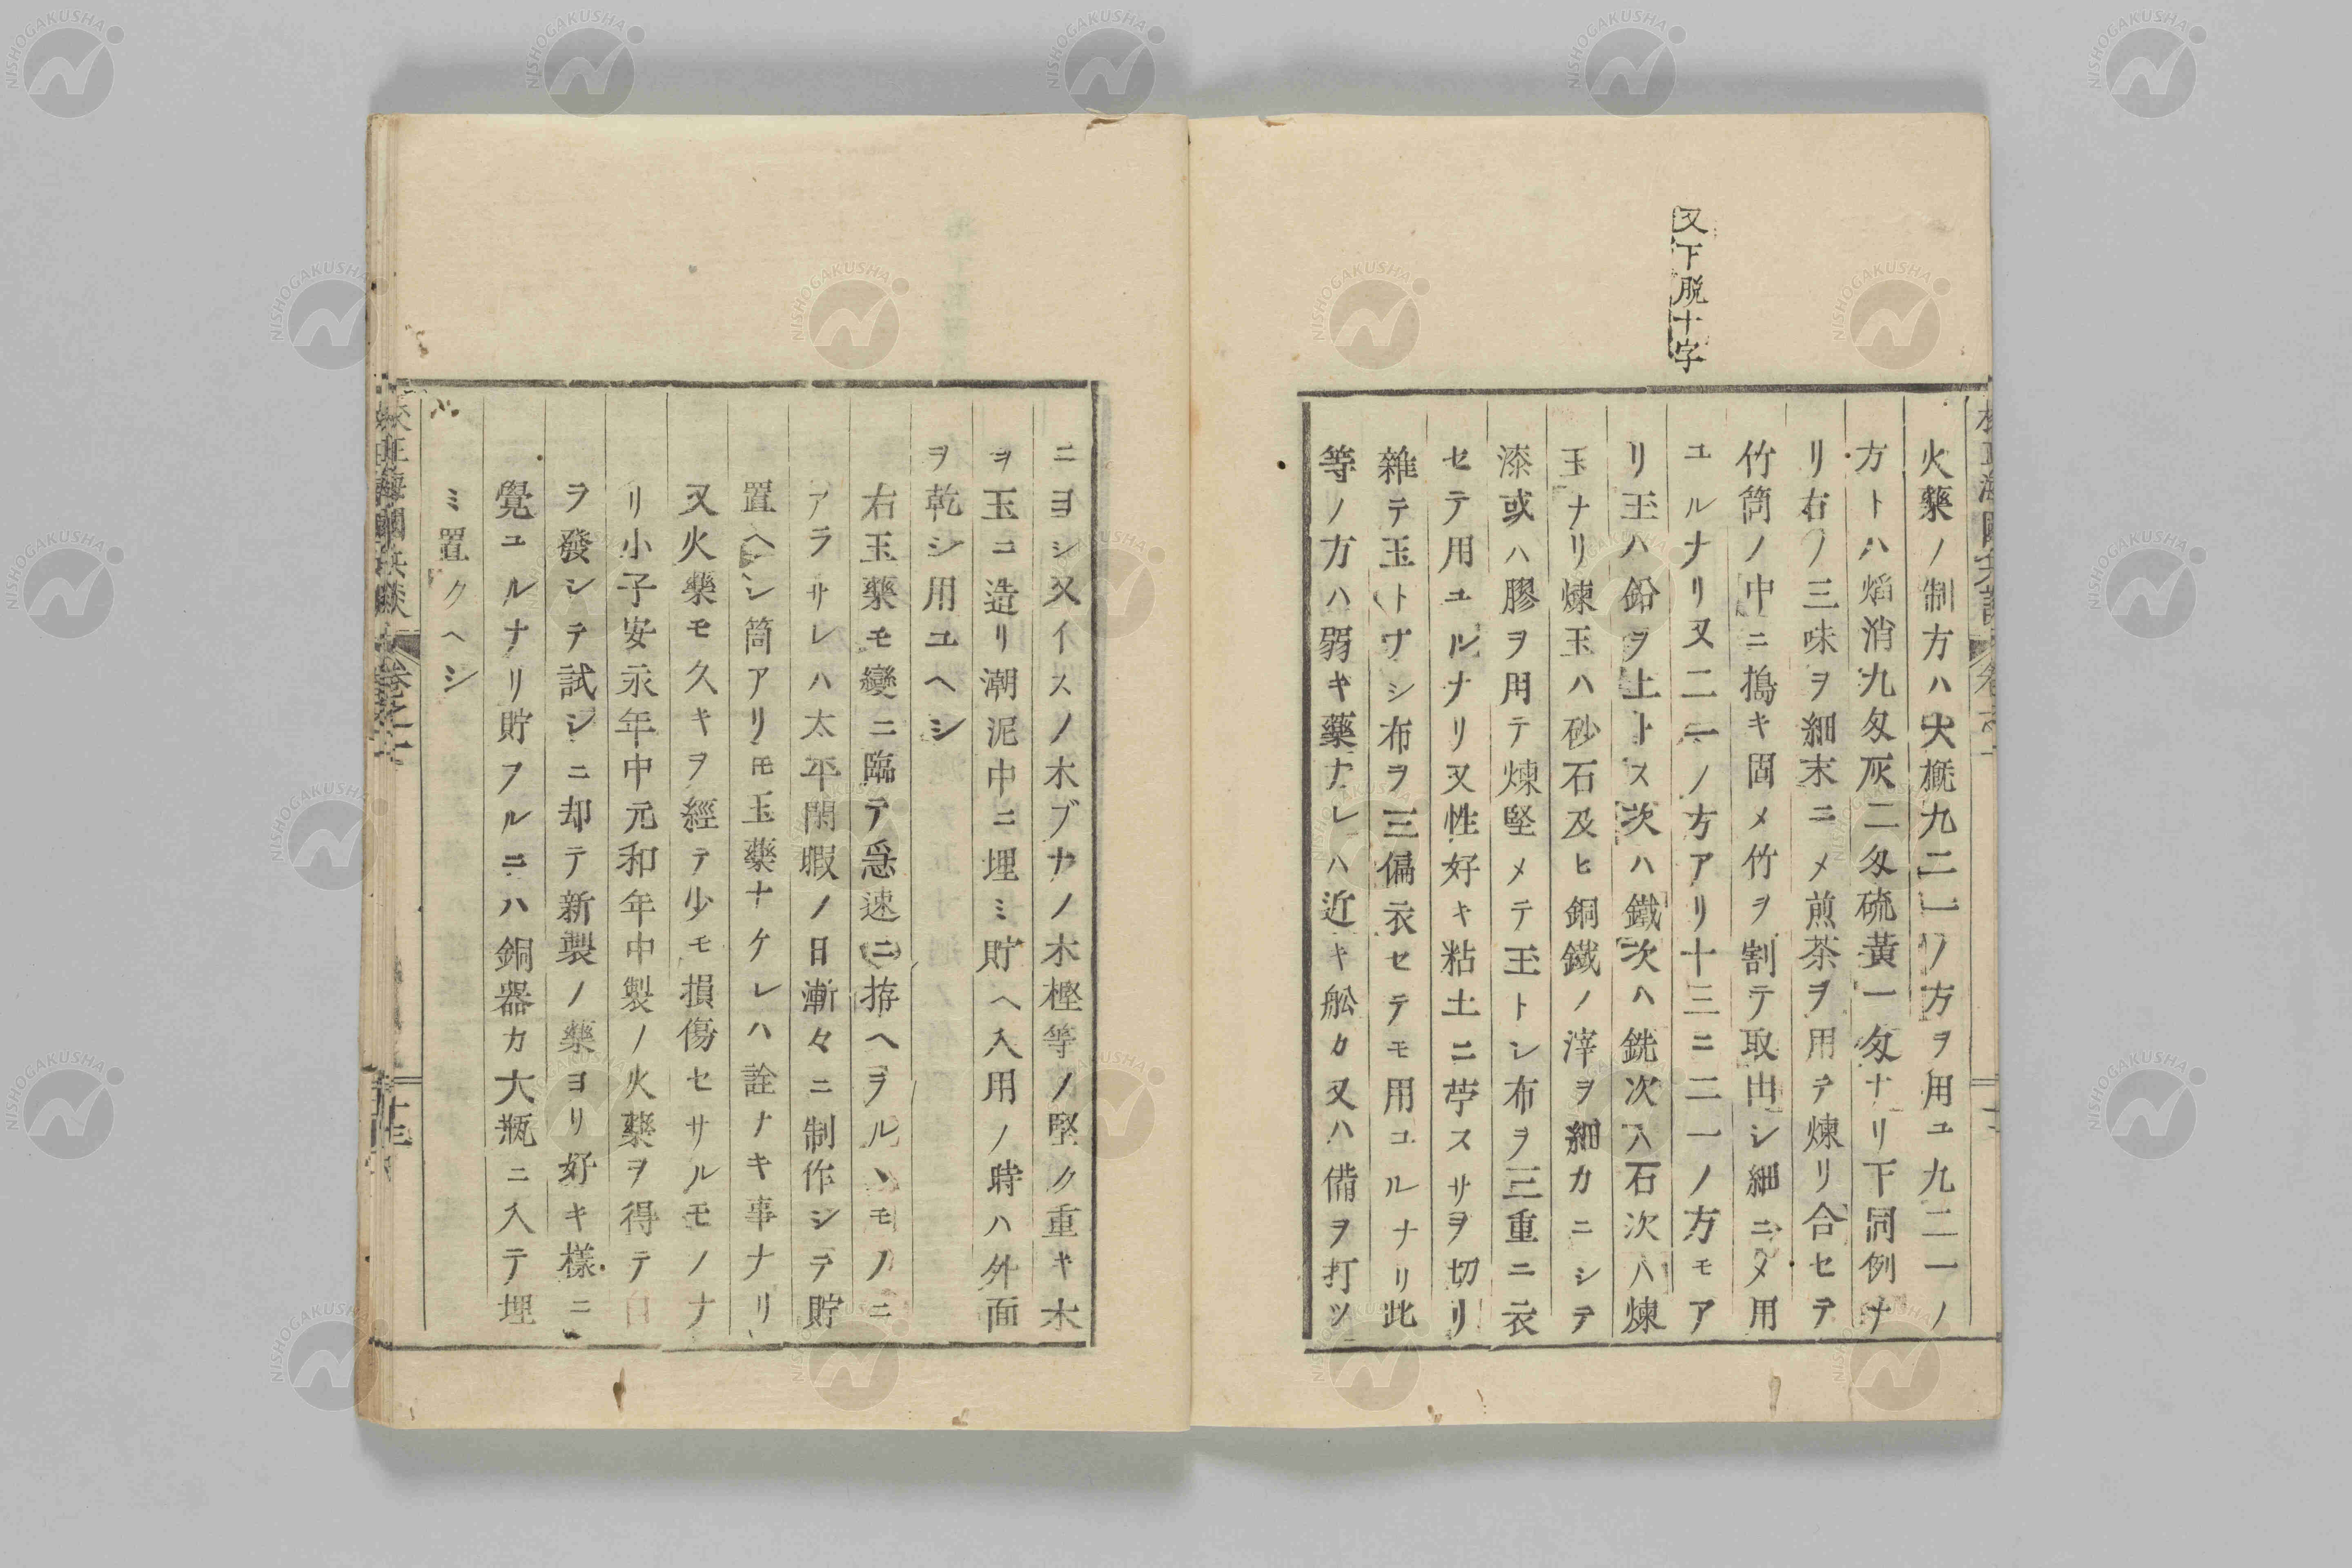 又下脱十字
火藥ノ制方ハ大概九二一ノ方ヲ用ユ九二一ノ
方トハ焔消九匁灰二匁硫黃一匁ナリ下同例ナ
リ右ノ三味ヲ細末ニメ煎茶ヲ用テ煉リ合セテ
竹筒ノ中ニ搗キ固メ竹ヲ割テ取出シ細ニメ用
ユルナリ又二一ノ方アリ十三ニ二一ノ方モア
リ玉ハ鉛ヲ上トス次ハ鐵次ハ銑次ハ石次ハ煉
玉ナリ煉玉ハ砂石及ヒ銅鐵ノ滓ヲ細カニシテ
漆或ハ膠ヲ用テ煉堅メテ玉トシ布ヲ三重ニ衣
セテ用ユルナリ又性好キ粘土ニ苧スサヲ切リ
雜テ玉トナシ布ヲ三偏衣セテモ用ユルナリ此
等ノ方ハ弱キ藥ナレハ近キ舩カ又ハ備ヲ打ツ
ニヨシ又イスノ木ブナノ木樫等ノ堅ク重キ木
ヲ玉ニ造リ潮泥中ニ埋ミ貯ヘ入用ノ時ハ外面
ヲ乾シ用ユヘシ
右玉藥モ變ニ臨テ急速ニ拵ヘヲルヽモノニ
アラサレハ太平閑暇ノ日漸々ニ制作シテ貯
置ヘシ筒アリ𪜈玉藥ナケレハ詮ナキ事ナリ
又火藥モ久キヲ經テ少モ損傷セサルモノナ
リ小子安永年中元和年中製ノ火藥ヲ得テ自
ヲ發シテ試シニ却テ新製ノ藥ヨリ好キ樣ニ
覺ユルナリ貯フルニハ銅器カ大瓶ニ入テ埋
ミ置クヘシ
卷之一
十三